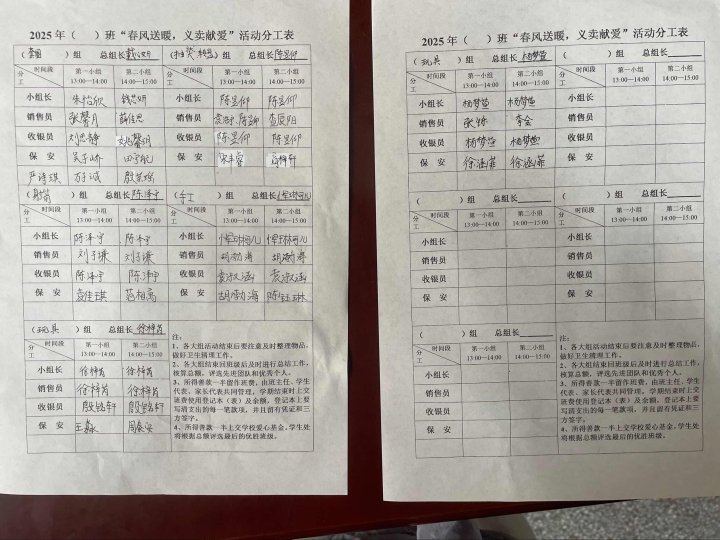 2025 年（ ）班“春风送暖，义卖献爱”活动分工表
（ ）组 总组长
（ ）组 总组长 陈昱仰
分工 时间段 第一小组 13:00—14:00 第二小组 14:00—15:00
分工 时间段 第一小组 13:00—14:00 第二小组 14:00—15:00
小组长 朱怡欣 钱芯妍 小组长 陈昱仰 陈昱仰
销售员 张馨月 薛佳思 销售员
收银员 刘思静 姚馨玥 收银员 陈昱仰 陈昱仰
保 安 吴子峤 田宇航 保 安
严诗琪
（ ）组 总组长 陈泽宇
（手工）组 总组长
分工 时间段 第一小组 13:00—14:00 第二小组 14:00—15:00
分工 时间段 第一小组 13:00—14:00 第二小组 14:00—15:00
小组长 陈泽宇 陈泽宇 小组长
销售员 刘子谦 刘子谦 销售员
收银员 陈泽宇 陈泽宇 收银员 袁淑涵 袁淑涵
保 安 范相禹 保 安 陈钰琳
（玩具）组 总组长 徐梓芮
分工 时间段 第一小组 13:00—14:00 第二小组 14:00—15:00
小组长 徐梓芮 徐梓芮
销售员 徐梓芮 徐梓芮
收银员 殷铭轩 殷铭轩
保 安 王淼
注：
1、各大组活动结束后要注意及时整理物品，
做好卫生清理工作。
2、各大组结束回班级后及时进行总结工作，
核算总额，评选先进团队和优秀个人。
3、所得善款一半留作班费，由班主任、学生
代表、家长代表共同管理，学期结束时上交
班费使用登记本（表）及余额，登记本上要
写清支出的每一笔款项，并且留有见证和三
方签字。
4、所得善款一半上交学校爱心基金，学生处
将根据总额评选最后的优胜班级。
2025 年（ ）班“春风送暖，义卖献爱”活动分工表
（玩具）组 总组长 杨梦萱
（ ）组 总组长
分工 时间段 第一小组 13:00—14:00 第二小组 14:00—15:00
分工 时间段 第一小组 13:00—14:00 第二小组 14:00—15:00
小组长 杨梦萱 杨梦萱 小组长
销售员 李会 销售员
收银员 杨梦萱 杨梦萱 收银员
保 安 徐涵霏 徐涵霏 保 安
（ ）组 总组长
（ ）组 总组长
分工 时间段 第一小组 13:00—14:00 第二小组 14:00—15:00
分工 时间段 第一小组 13:00—14:00 第二小组 14:00—15:00
小组长 小组长
销售员 销售员
收银员 收银员
保 安 保 安
（ ）组 总组长
分工 时间段 第一小组 13:00—14:00 第二小组 14:00—15:00
小组长
销售员
收银员
保 安
注：
1、各大组活动结束后要注意及时整理物品，
做好卫生清理工作。
2、各大组结束回班级后及时进行总结工作，
核算总额，评选先进团队和优秀个人。
3、所得善款一半留作班费，由班主任、学生
代表、家长代表共同管理，学期结束时上交
班费使用登记本（表）及余额，登记本上要
写清支出的每一笔款项，并且留有见证和三
方签字。
4、所得善款一半上交学校爱心基金，学生处
将根据总额评选最后的优胜班级。